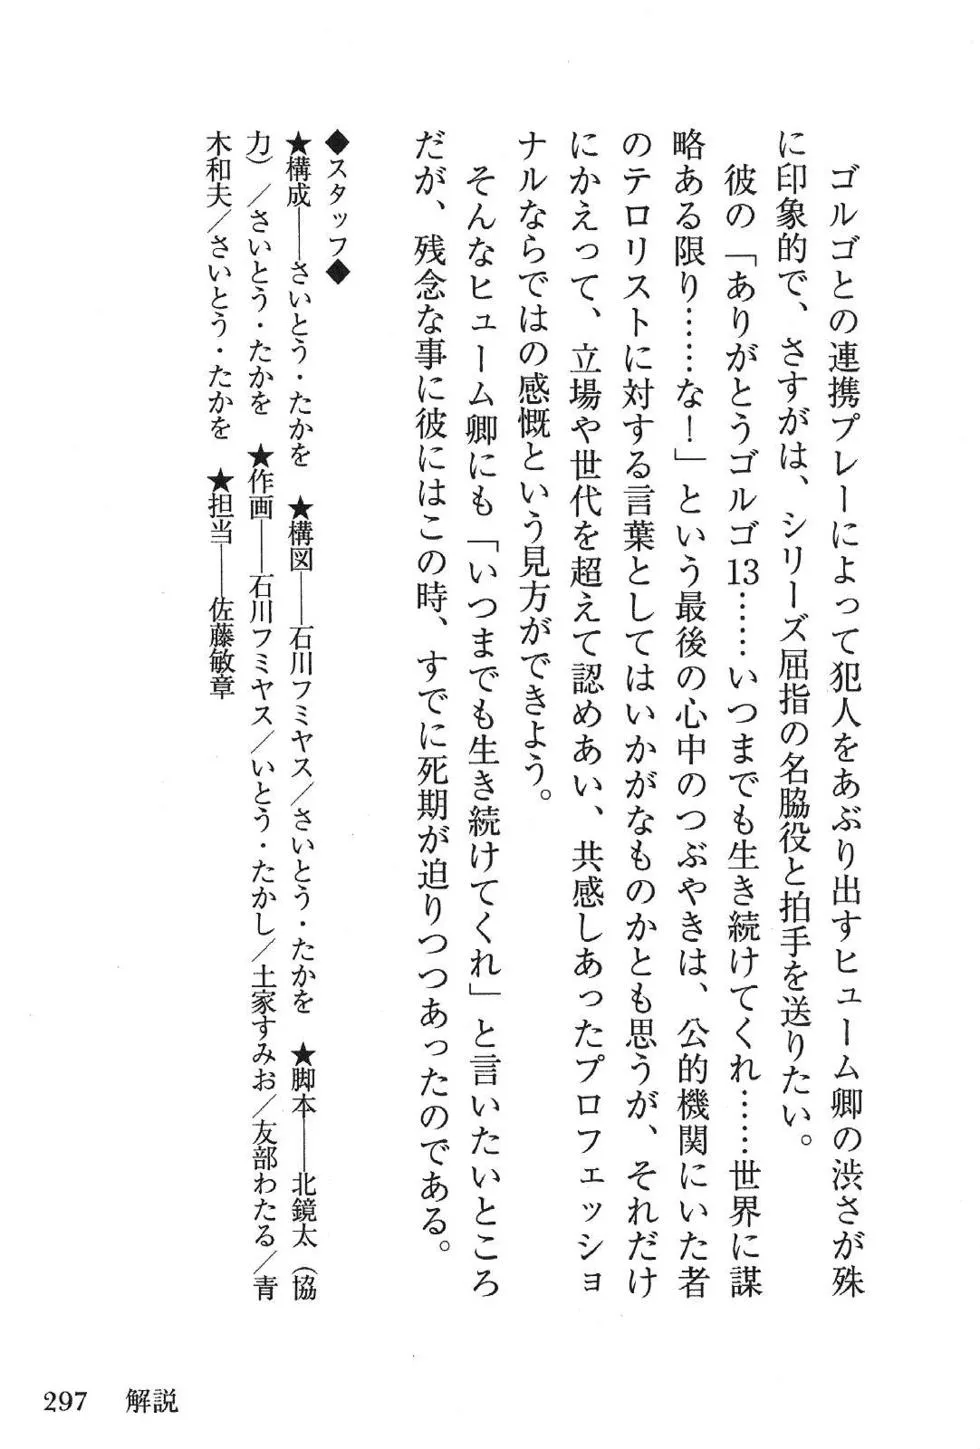 ゴルゴとの連携プレーによって犯人をあぶり出すヒューム卿の渋さが殊
に印象的で、さすがは、シリーズ屈指の名脇役と拍手を送りたい。
彼の「ありがとうゴルゴ13……いつまでも生き続けてくれ……世界に謀
略ある限り……な！」という最後の心中のつぶやきは、公的機関にいた者
のテロリストに対する言葉としてはいかがなものかとも思うが、それだけ
にかえって、立場や世代を超えて認めあい、共感しあったプロフェッショ
ナルならではの感慨という見方ができよう。
そんなヒューム卿にも「いつまでも生き続けてくれ」と言いたいところ
だが、残念な事に彼にはこの時、すでに死期が迫りつつあったのである。
◆スタッフ◆
★構成――さいとう・たかを　★構図――石川フミヤス／さいとう・たかを　★脚本――北鏡太（協
力）／さいとう・たかを　★作画――石川フミヤス／いとう・たかし／土家すみお／友部わたる／青
木和夫／さいとう・たかを　★担当――佐藤敏章
297　解説